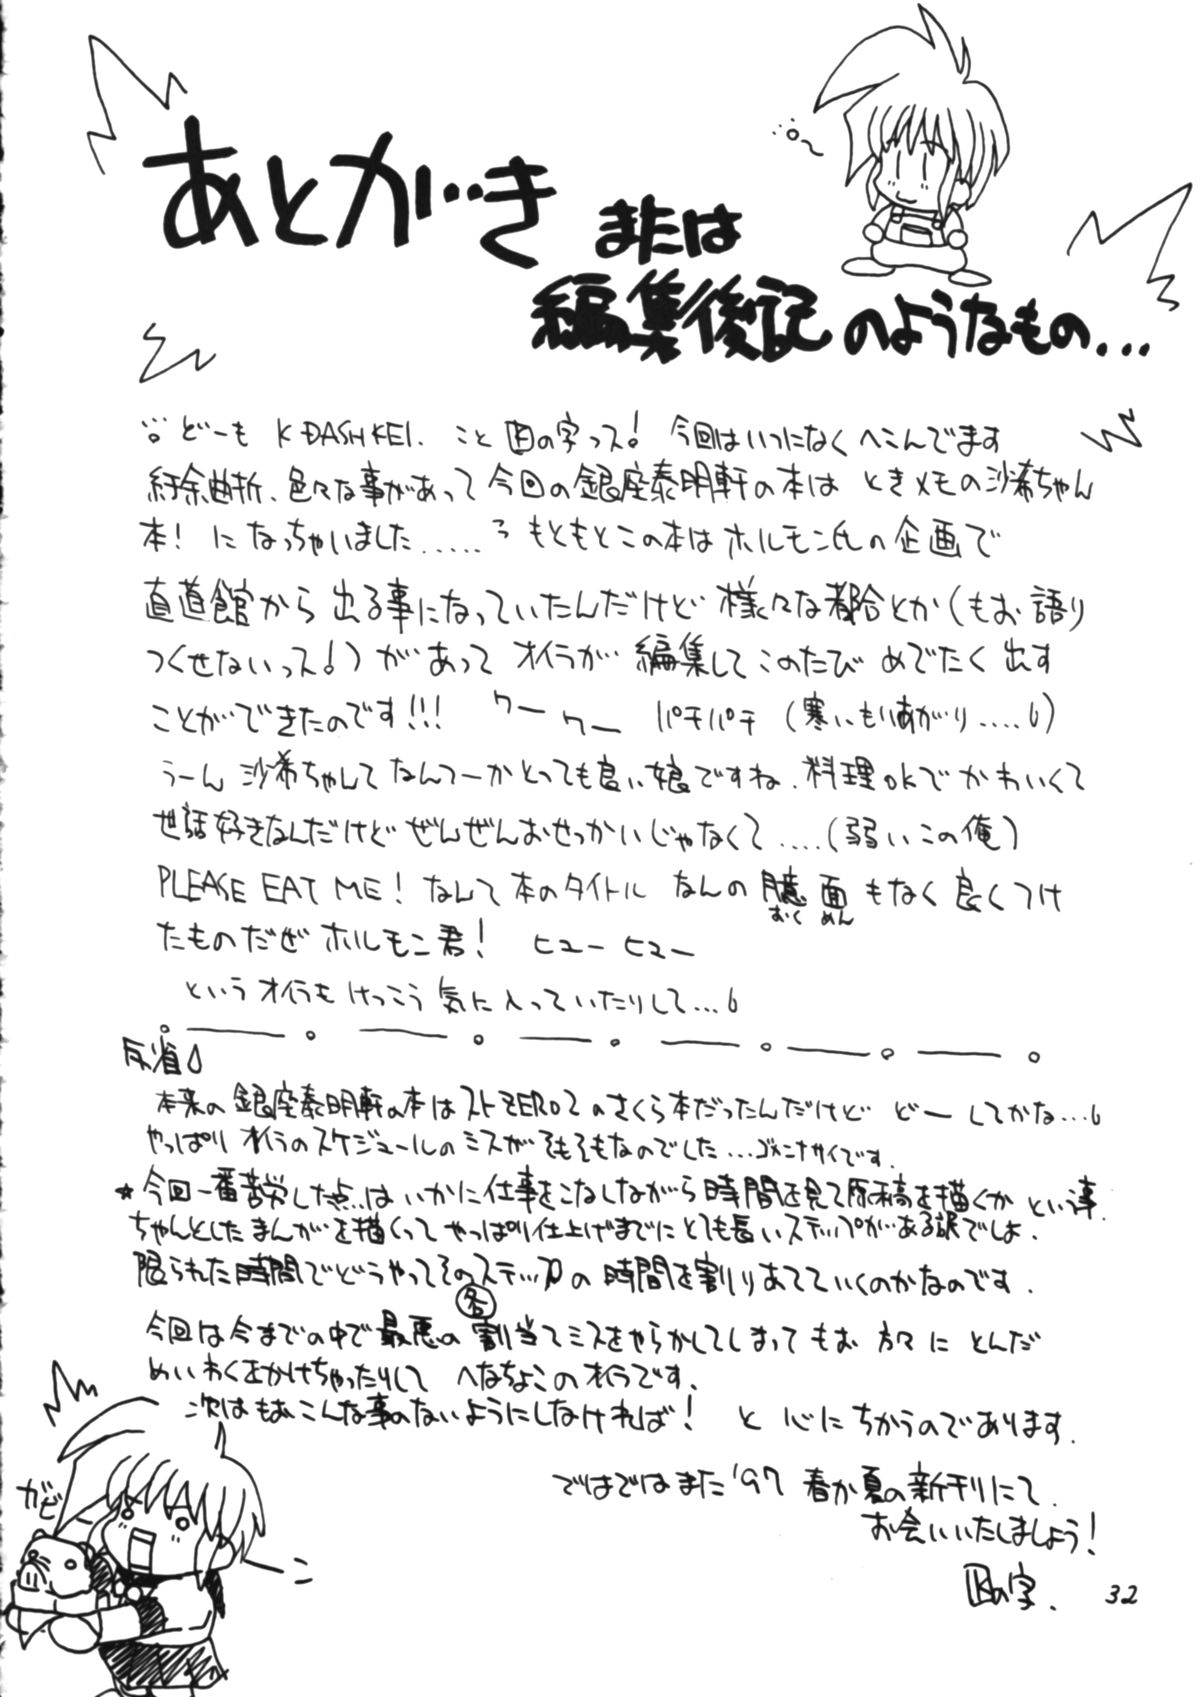 あとがき または
編集後記のようなもの...
どーも K-DASH KEI. こと Kの字っス! 今回はいつになくへこんでます
紆余曲折、色々な事があって今回の銀座泰明軒の本は ときメモの沙希ちゃん
本! になっちゃいました..... もともとこの本はホルモン氏の企画で
直道館から出る事になっていたんだけど様々な都合とか(もお語り
つくせないっス!)があって オイラが編集してこのたび めでたく出す
ことができたのです!!! ワー ワー パチパチ (寒いもりあがり.....)
うーん 沙希ちゃんてなんてーかとっても良い娘ですね. 料理okでかわいくて
世話好きなんだけどぜんぜんおせっかいじゃなくて....(弱いこの俺)
PLEASE EAT ME! なんて本のタイトル なんの臆面もなく良くつけ
おく めん
たものだぜホルモン君! ヒューヒュー
というオイラもけっこう気に入っていたりして...
反省
本来の銀座泰明軒の本はストZERO2のさくら本だったんだけど どーしてかな...
やっぱりオイラのスケジュールのミスがそもそもなのでした...ゴメンナサイです.
★今回一番苦労した点は いかに仕事をこなしながら時間を見て原稿を描くか という事.
ちゃんとしたまんがを描くってやっぱり仕上げまでにとても長いステップがある訳でしょ.
限られた時間でどうやってその各ステップの時間を割りあてていくのかなのです.
今回は今までの中で最悪の割当てミスをやらかしてしまってもお 方々に とんだ
めいわくをかけちゃったりして へなちょこのオイラです.
次はもおこんな事のないようにしなければ! と 心に ちかうのであります.
ではではまた '97 春か夏の新刊にて.
お会いいたしましょう!
Kの字.
ガビ
32